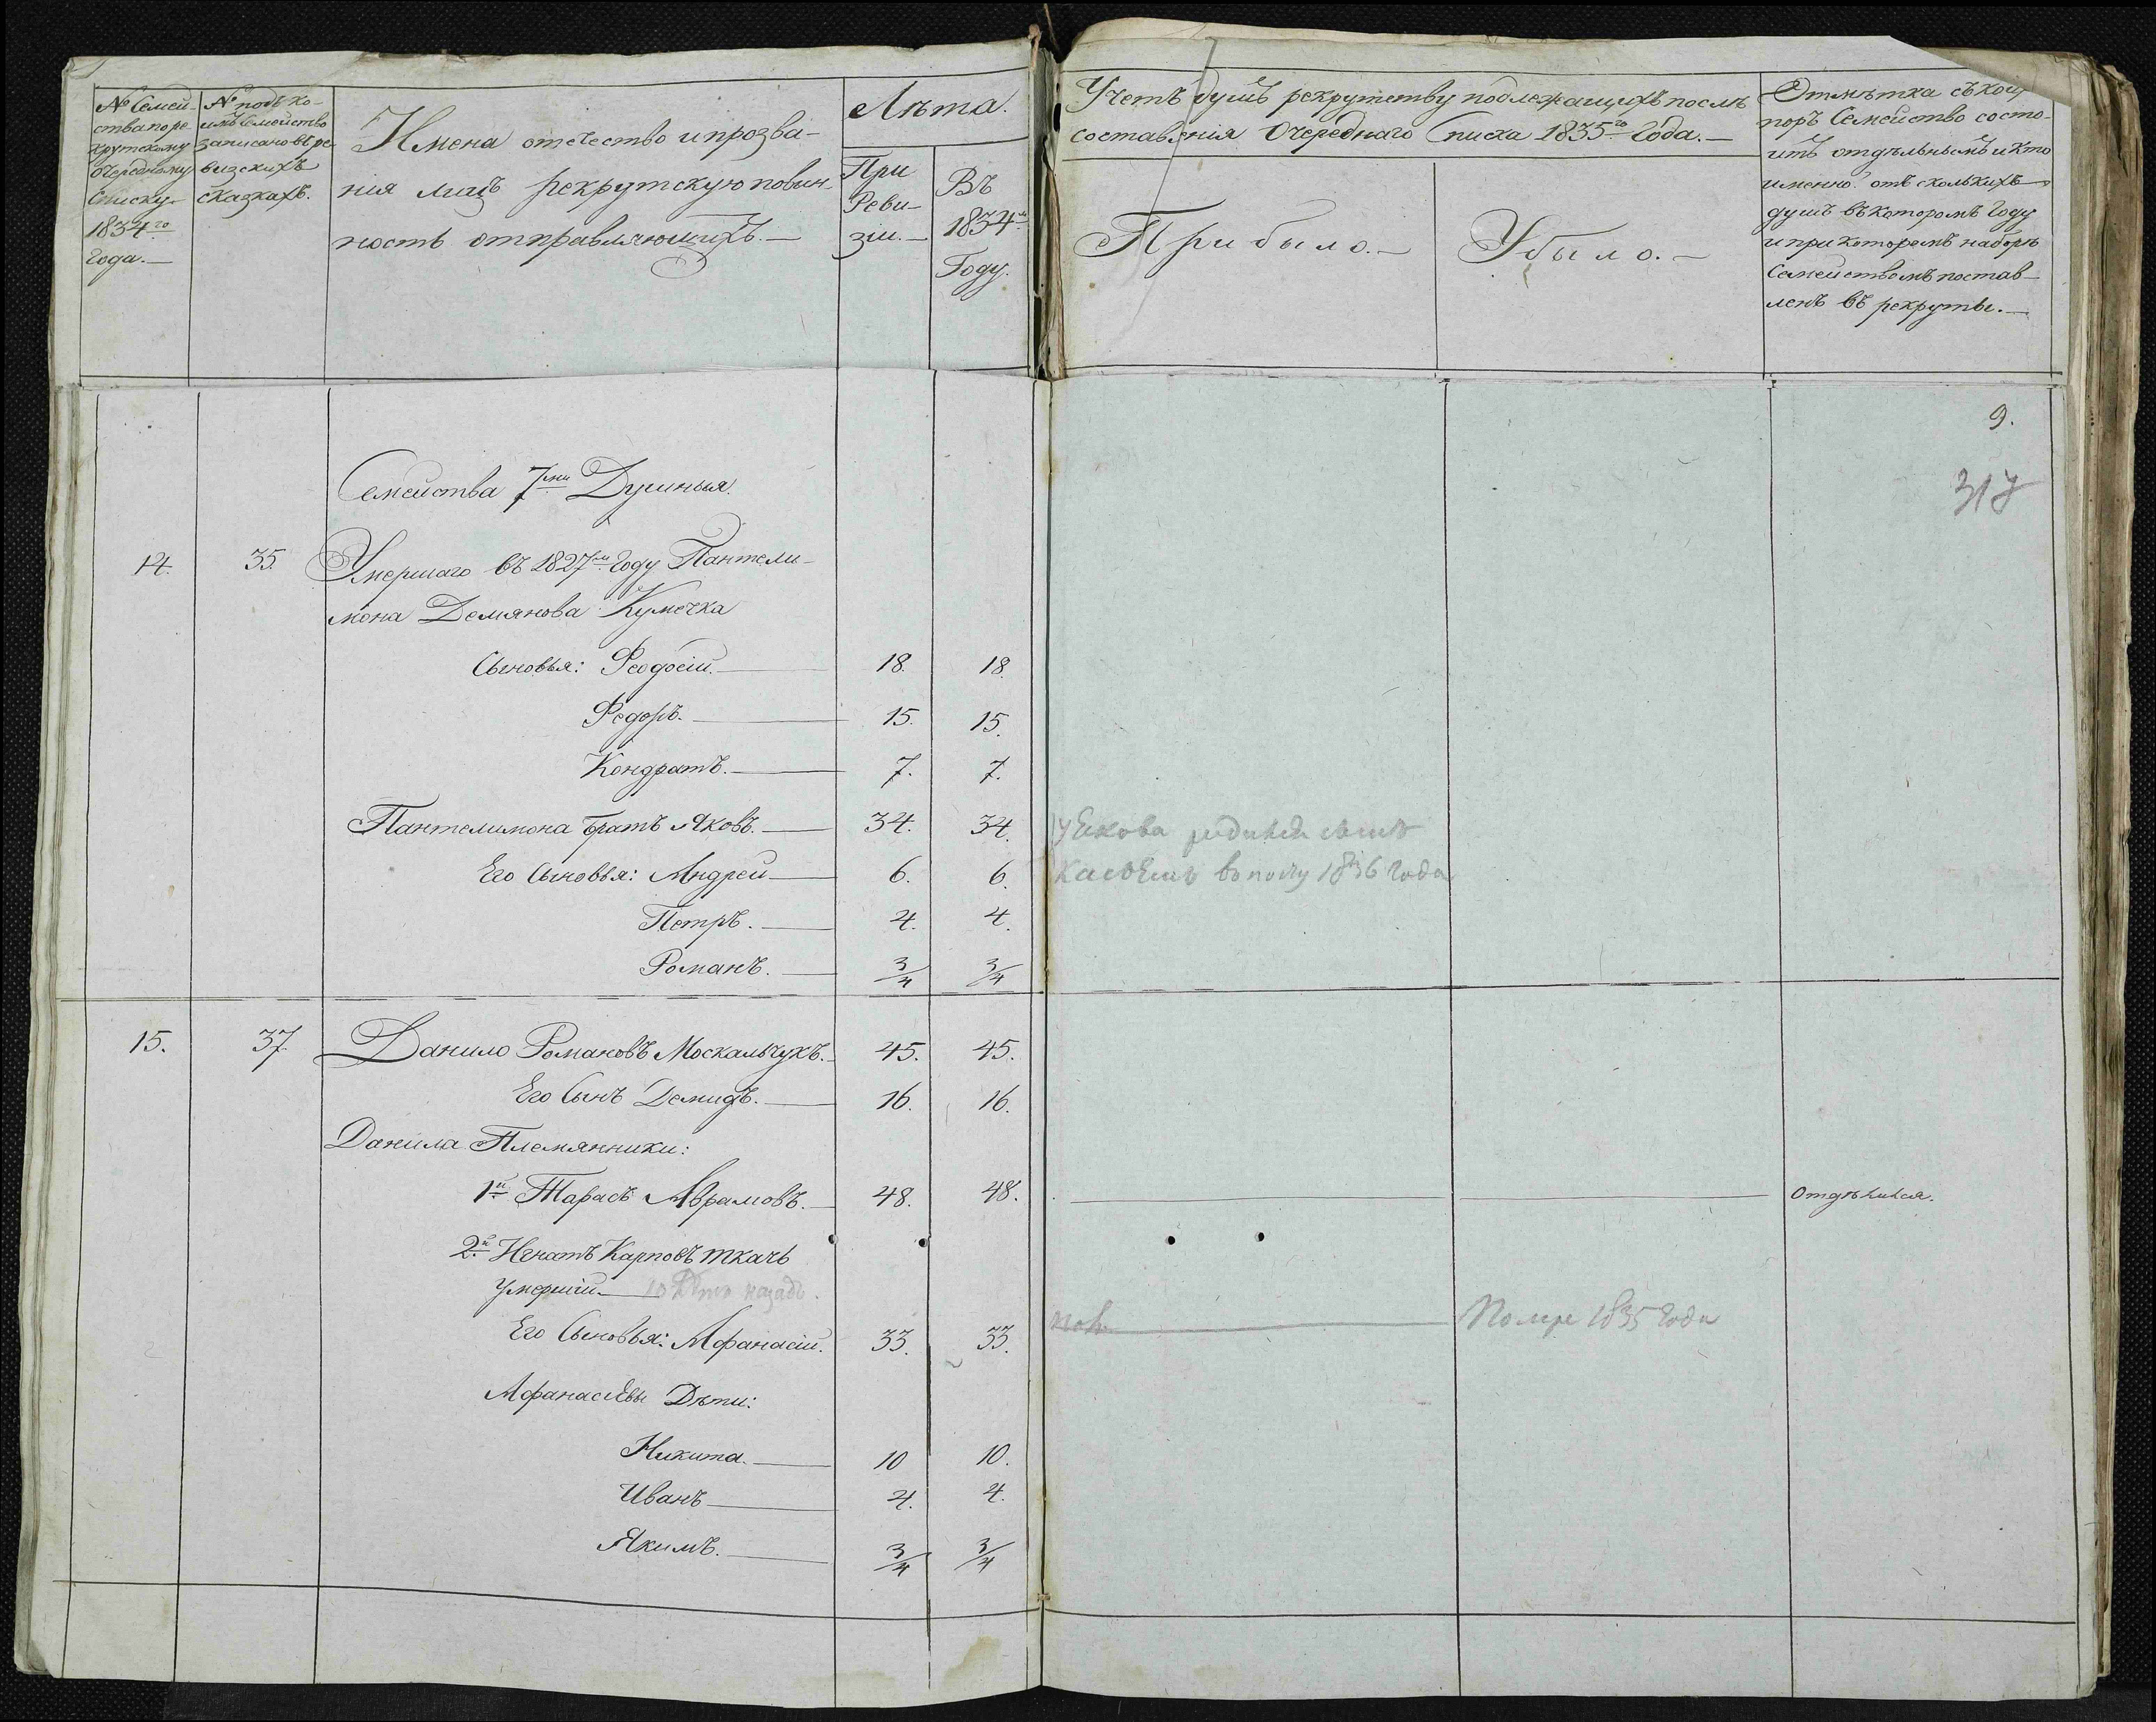 № Семей-
ства по ре-
крутскому
очередному
Списку
1834го
года.—
№ подъ ко-
имъ Семейство
записано въ ре-
визскихъ
сказкахъ.
Имена отечество и прозва-
нія лицъ рекрутскую повин-
ность отправляющихъ.—
Лѣта.
При
Реви-
зіи.—
Въ
1834м
Году.
Учетъ душъ рекрутству подлежащихъ послѣ
составленія Очереднаго Списка 1835го Года.—
Прибыло.—
Убыло.—
Отмѣтка съ кои
поръ Семейство состо-
итъ отдѣльнымъ и кто
именно отъ сколькихъ
душъ въ которомъ Году
и при которомъ наборѣ
Семействомъ постав-
ленъ въ рекруты.—
9.
317
Семейства 7ми Душныя.
14. 35. Умершаго въ 1827м Году Пантели-
мона Демянова Кумечка
Сыновья: Феодосій.— 18. 18.
Федоръ.— 15. 15.
Кондратъ.— 7. 7.
Пантелимона братъ Яковъ.— 34. 34. У Екова родился сынъ
Его Сыновья: Андрей— 6. 6. 1836 Года
Петръ.— 4. 4.
Романъ.— 3/4 3/4
15. 37. Данило Романовъ Москальчукъ.— 45. 45.
Его Сынъ Демидъ.— 16. 16.
Данила Племянники:
1й Тарасъ Аврамовъ.— 48. 48. Отдѣлился.
2й Игнатъ Карповъ Ткачъ
Умершій— 10 Летъ назадъ.
Его Сыновья: Афанасій. 33. 33. Помре 1835 Года
Афанасіевы Дѣти:
Никита.— 10 10.
Иванъ— 4. 4.
Якимъ.— 3/4 3/4